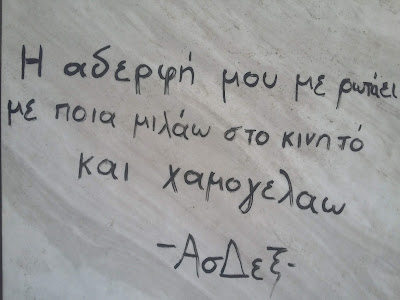 Η αδερφή μου με ρωτάει
με ποια μιλάω στο κινητό
και χαμογελαω
-ΑσΔεξ-